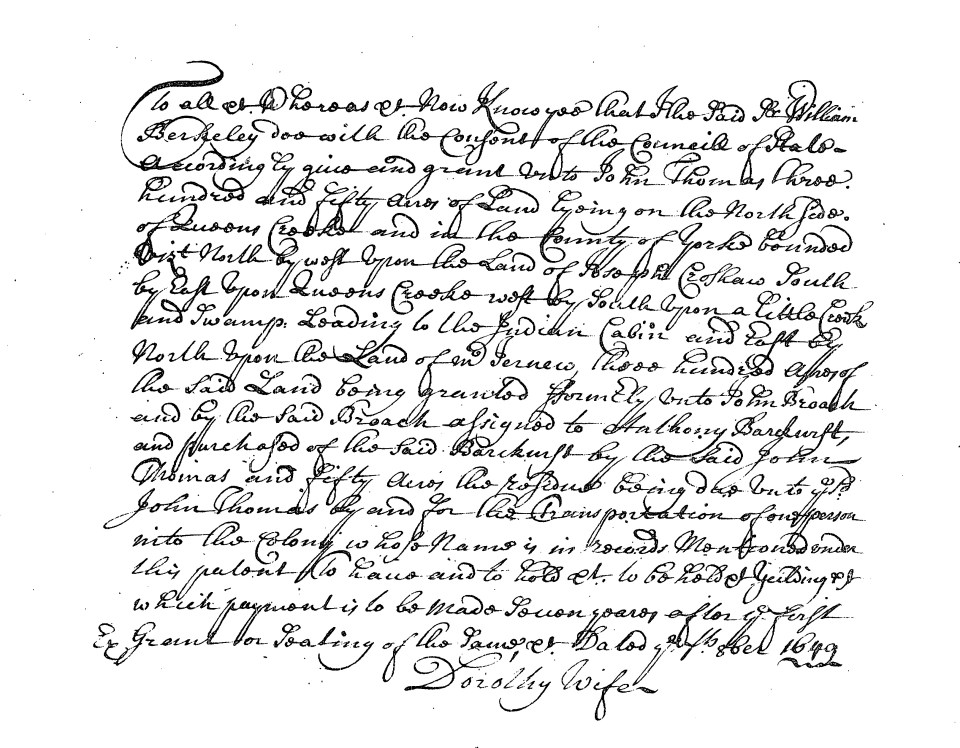 To all &t. Whereas &t. Now Know yee that I the Said Sr William
Berkeley doe with the Consent of the Councill of State
Acordingly give and grant unto John Thomas three
hundred and fifty Acres of Land lyeing on the North side
of Queens Creeke and in the County of Yorke bounded
vizt North by west upon the Land of Joseph Croshaw South
by East upon Queens Creeke west by South upon a little Creek
and Swamp Leading to the Indian Cabin and East by
North upon the Land of mr Jernew, three hundred Acres of
the said Land being granted fformerly unto John Broach
and by the said Broach assigned to Anthony Barkurst,
and purchased of the said Barkhurst by the said John
Thomas and fifty Acres the residue being due unto ye sd.
John Thomas by and for the transportation of one person
into the Colony whose Name is in records Mentioned under
this patent To have and to hold &t. to be held &t Yeilding &t
which payment is to be made Seven yeares after ye first
Ex Grant or Seating of the same, &t. Dated ye 8ber 1649
Dorothy Wife